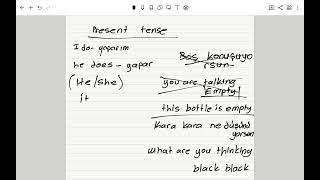 Present tense
I do - yaparım
he does - yapar
(He/she)
it
Boş konuşuyo
rsun
you are talking
Empty!
this bottle is empty
kara kara ne düşünü
yorsun
what are you thinking
black black